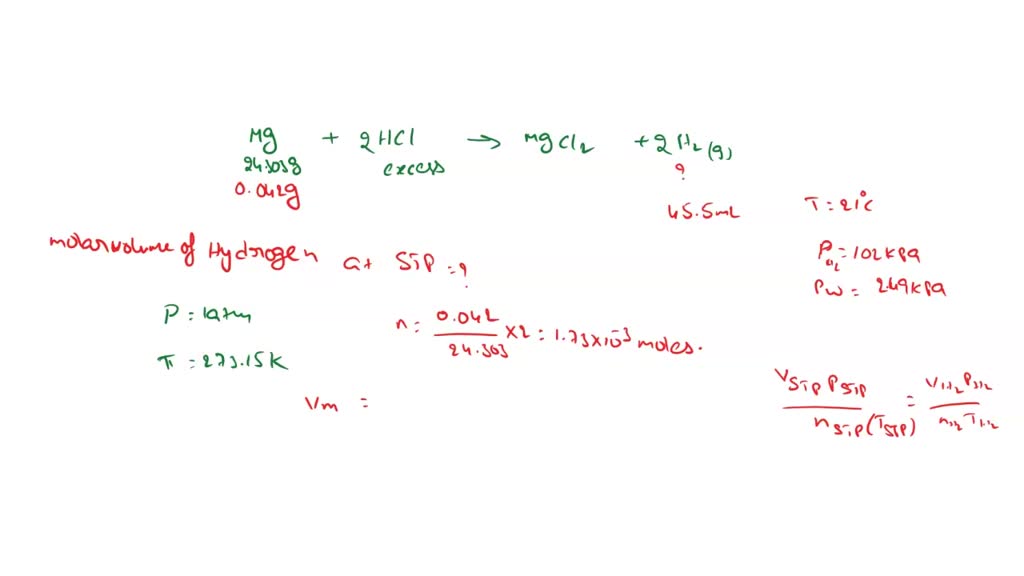 Mg + 2HCl → MgCl₂ + 2H₂(g)
24.303g excess ?
0.042g
45.5mL T = 21°C
molar volume of Hydrogen at STP = ?
P = 102kPa
Pw = 2.49kPa
P = 1atm
n = 0.042 / 24.303 × 2 = 1.73×10⁻³ moles.
T = 273.15K
Vm =
V_STP P_STP / n_STP (T_STP) = V_H₂ P_H₂ / n_H₂ T_H₂